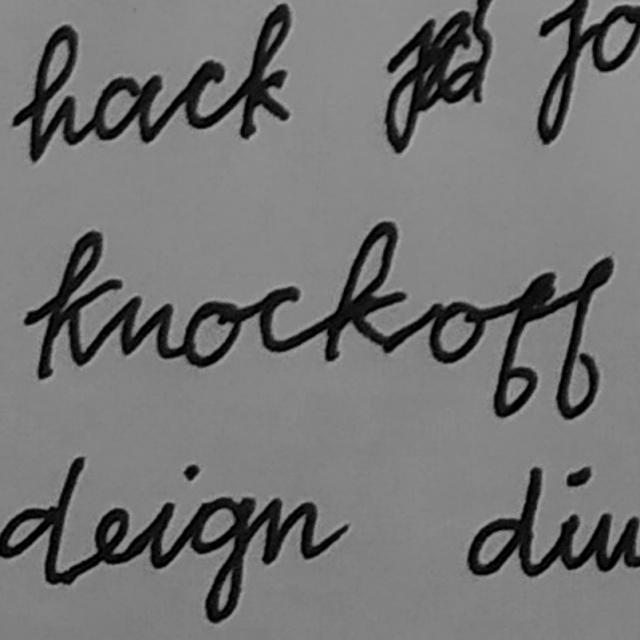 hack jo
knockoff
deign diu